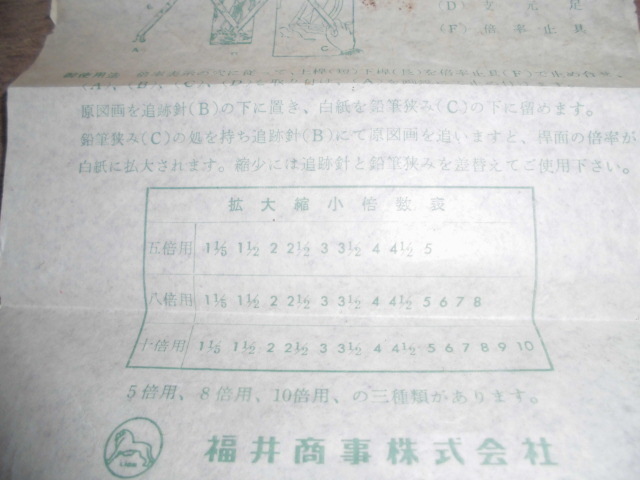 (D) 支元足
(F) 倍率止具
A
C
御使用法
原図画を追跡針(B)の下に置き、白紙を鉛筆挟み(C)の下に留めます。
鉛筆挟み(C)の処を持ち追跡針(B)にて原図画を追いますと、桿面の倍率が
白紙に拡大されます。縮少には追跡針と鉛筆挟みを差替えてご使用下さい。
拡大縮小倍数表
五倍用 1⅕ 1½ 2 2½ 3 3½ 4 4½ 5
八倍用 1⅕ 1½ 2 2½ 3 3½ 4 4½ 5 6 7 8
十倍用 1⅕ 1½ 2 2½ 3 3½ 4 4½ 5 6 7 8 9 10
5倍用、8倍用、10倍用、の三種類があります。
福井商事株式会社